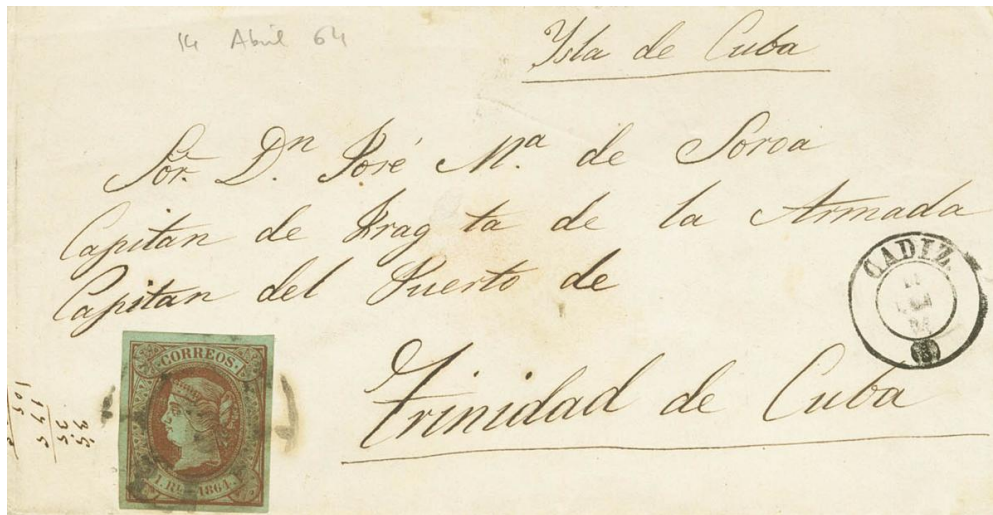 14 Abril 64
Ysla de Cuba
Sor. Dn. José Ma. de Soroa
Capitan de Fragta de la Armada
Capitan del Puerto de
Trinidad de Cuba
CADIZ
CORREOS
1 Rl. 1864.